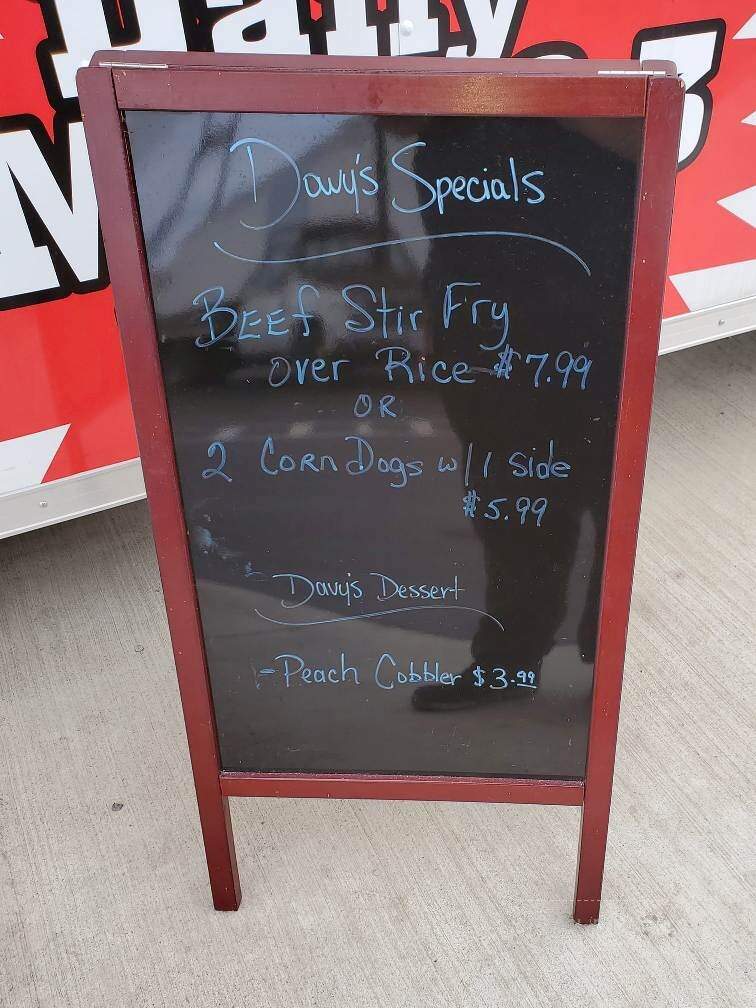 Daily
Davy's Specials
BEEf Stir Fry
over Rice $7.99
OR
2 CORn Dogs w/1 side
$5.99
Davy's Dessert
-Peach Cobbler $3.99